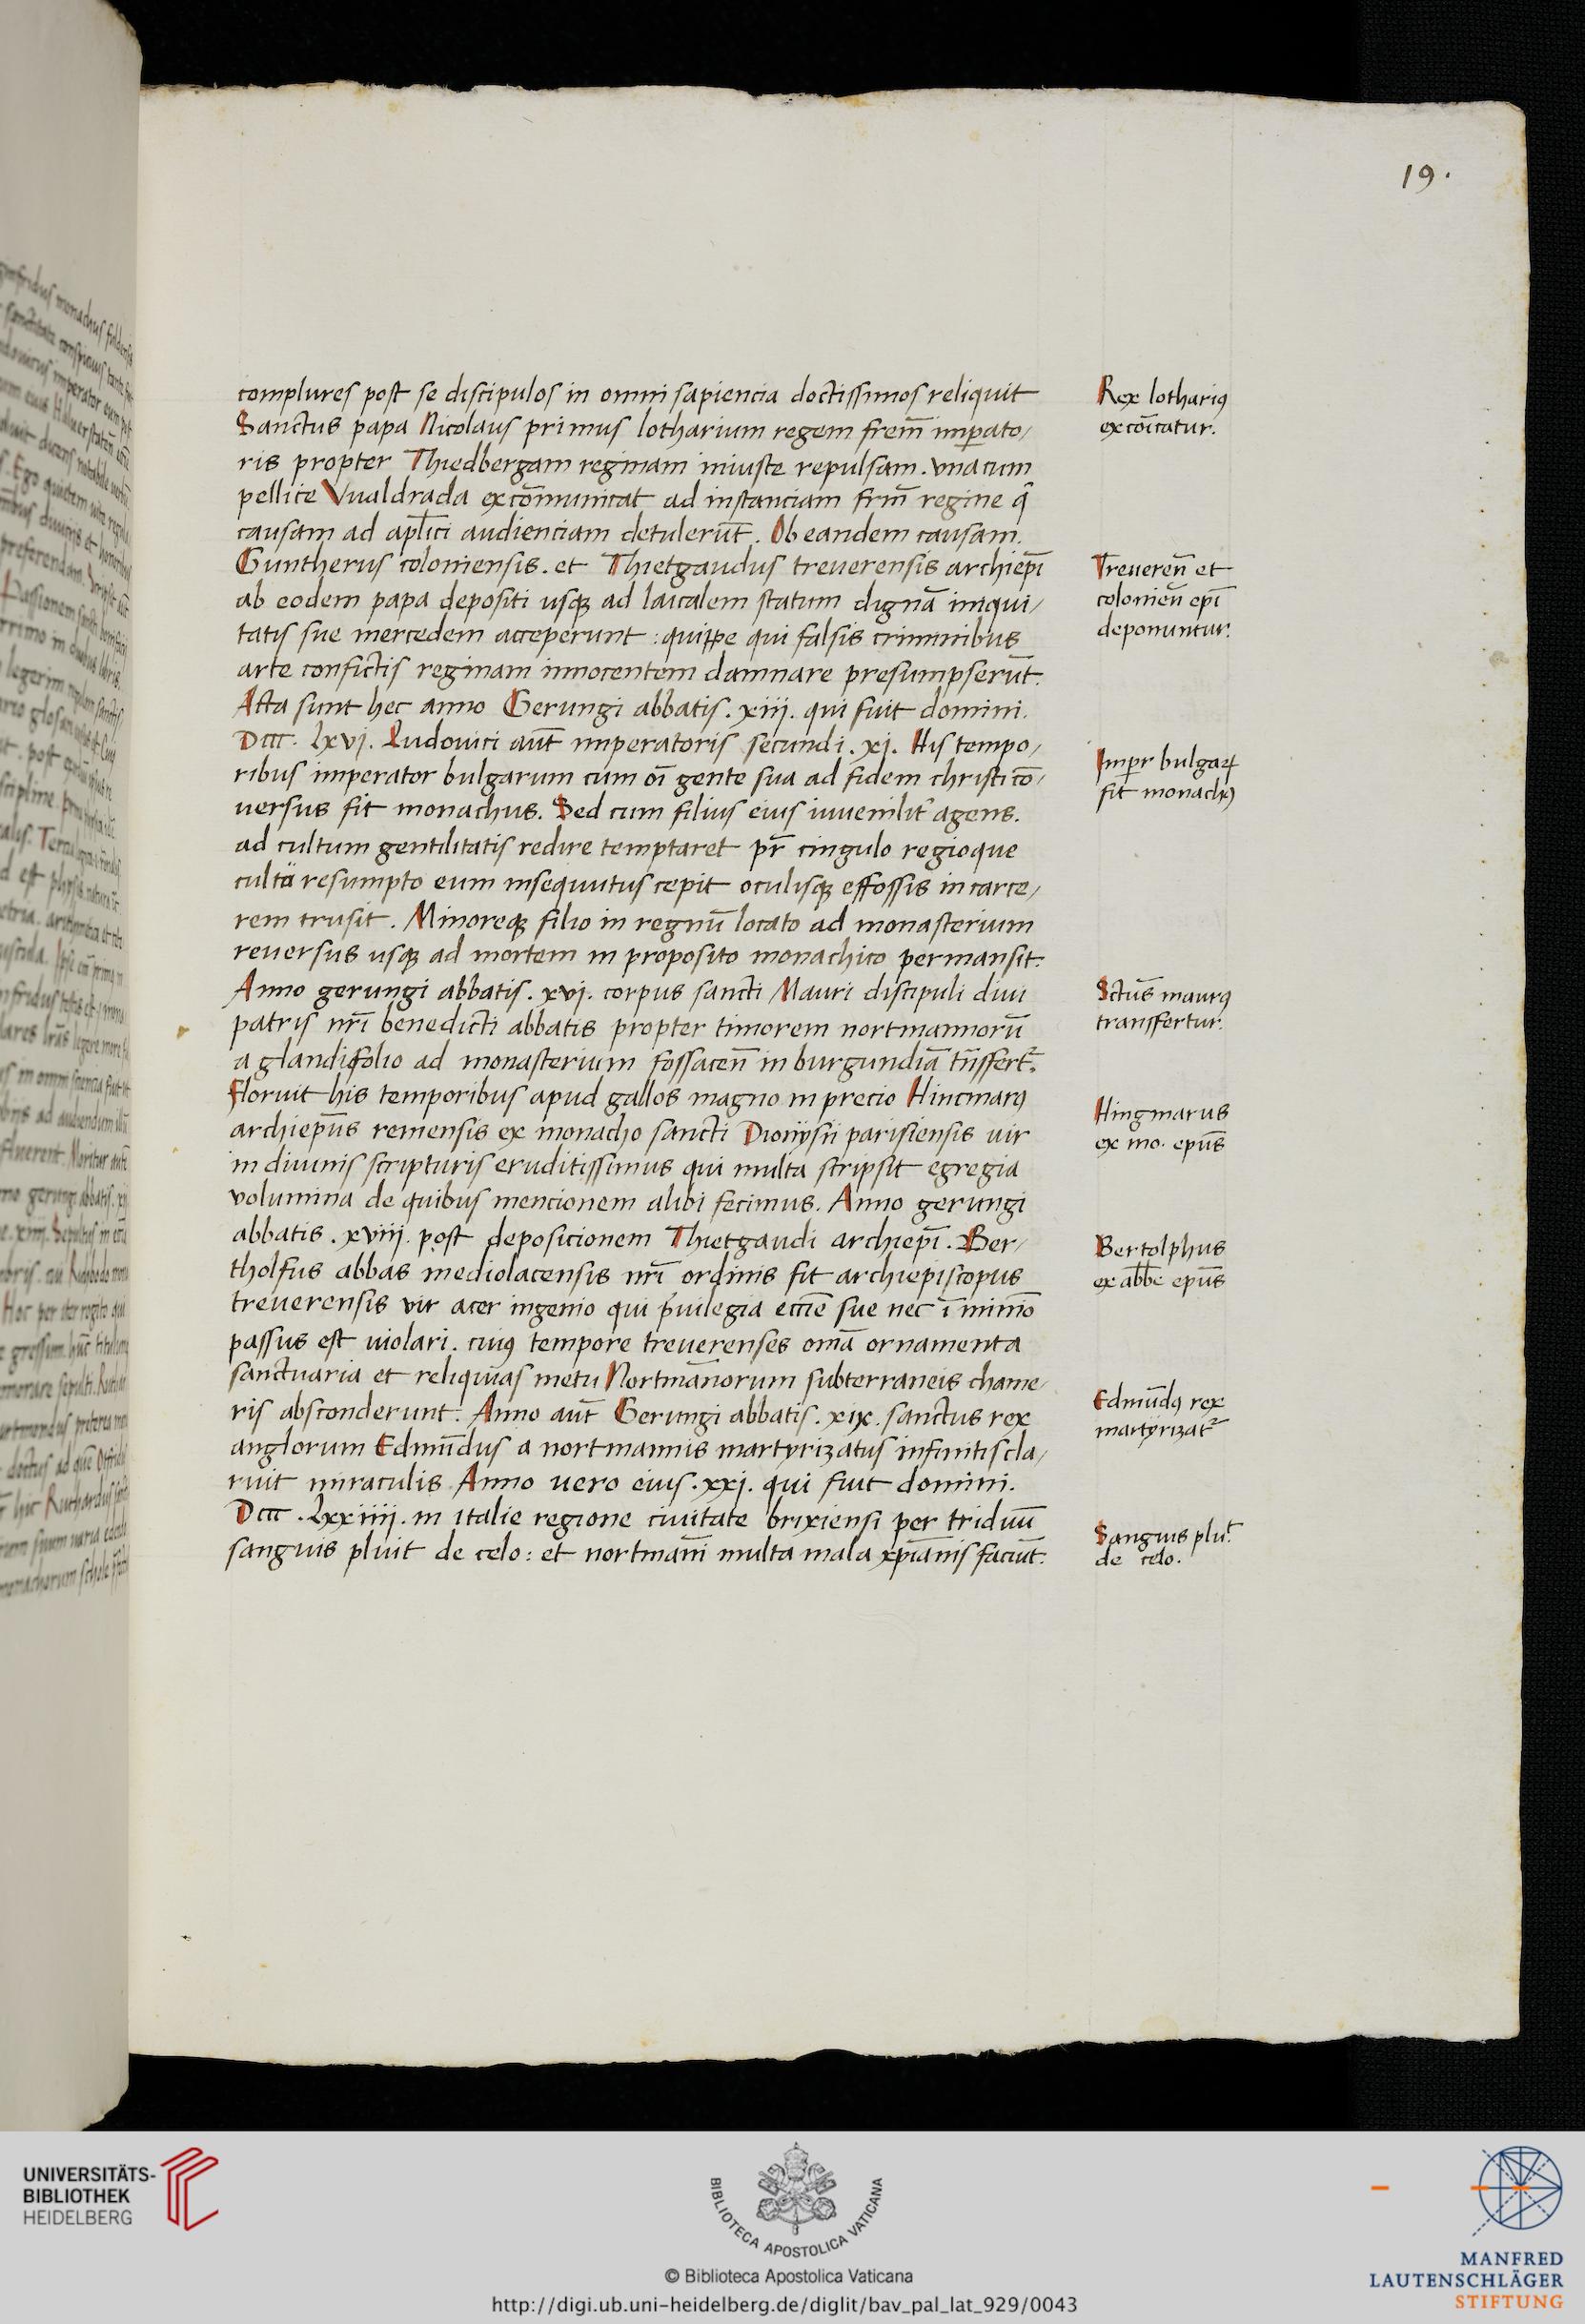 19.
complures post se discipulos in omni sapiencia doctissimos reliquit
Sanctus papa Nicolaus primus lotharium regem frem̄ imꝑato/
ris propter Thiedbergam reginam iniuste repulsam. vna cum
pellice Vualdrada excōmunicat ad instanciam frm̄ regine q̄
causam ad apl̄ici audienciam detulerūt. Ob eandem causam.
Guntherus coloniensis. et Thietgaudus treuerensis archiep̄i
ab eodem papa depositi usqꝫ ad laicalem statum dignā iniqui/
tatis sue mercedem acceperunt: quippe qui falsis criminibus
arte confictis reginam innocentem damnare presumpserūt.
Acta sunt hec anno Gerungi abbatis. xiij. qui fuit domini.
Dccc. lxvj. Ludouici aūt imperatoris secundi. xj. His tempo/
ribus imperator bulgarum cum oī gente sua ad fidem christi cō/
versus fit monachus. Sed cum filius eius iuuenilit̄ agens.
ad cultum gentilitatis redire temptaret pr̄ cingulo regioque
cultu resumpto eum insequutus cepit oculisqꝫ effossis in carce/
rem trusit. Minoreqꝫ filio in regnū locato ad monasterium
reuersus usqꝫ ad mortem in proposito monachico permansit.
Anno gerungi abbatis. xvj. corpus sancti Mauri discipuli diui
patris nr̄i benedicti abbatis propter timorem nortmannorū
a glandifolio ad monasterium fossacen̄ in burgundiā trn̄ssfert᷑.
Floruit his temporibus apud gallos magno in precio Hincmarꝰ
archiep̄us remensis ex monacho sancti Dionysii parisiensis uir
in diuinis scripturis eruditissimus qui multa scripsit egregia
volumina de quibus mencionem alibi fecimus. Anno gerungi
abbatis. xviij. post deposicionem Thietgaudi archiep̄i. Ber/
tholfus abbas mediolacensis nr̄i ordinis fit archiepiscopus
treuerensis vir acer ingenio qui p̄uilegia eccl̄ie sue nec ī minīo
passus est uiolari. cuiꝰ tempore treuerenses om̄ia ornamenta
sanctuaria et reliquias metu Nortmānorum subterraneis chame/
ris absconderunt. Anno aūt Gerungi abbatis. xix. sanctus rex
anglorum Edmūdus a nortmannis martyrizatus infinitis cla/
ruit miraculis. Anno uero eius. xxj. qui fuit domini.
Dccc. lxxiiij. in italie regione ciuitate brixiensi per triduū
sanguis pluit de celo: et nortmāni multa mala xp̄ianis faciūt.
Rex lothariꝰ
excōicatur.
Treueren̄ et
colonien̄ ep̄i
deponuntur.
Imꝑr bulgaꝝ
fit monachꝰ
Sctūs maurꝰ
transfertur.
Hingmarus
ex mo. ep̄us
Bertolphus
ex abb̄e ep̄us
Edmūdꝰ rex
martyrizat᷑
Sanguis plu᷑.
de celo.
UNIVERSITÄTS-
BIBLIOTHEK
HEIDELBERG
BIBLIOTECA APOSTOLICA VATICANA
© Biblioteca Apostolica Vaticana
http://digi.ub.uni-heidelberg.de/diglit/bav_pal_lat_929/0043
MANFRED
LAUTENSCHLÄGER
STIFTUNG